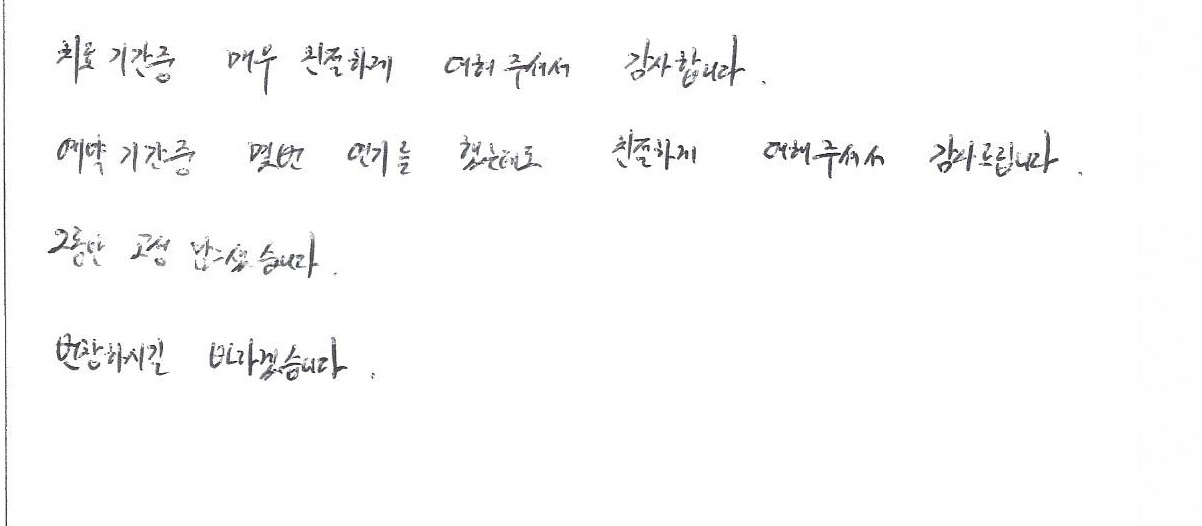 치료 기간중 매우 친절하게 대해 주셔서 감사합니다.
예약 기간중 몇번 연기를 했는데도 친절하게 대해주셔서 감사드립니다.
그동안 고생 많으셨습니다.
번창하시길 바라겠습니다.